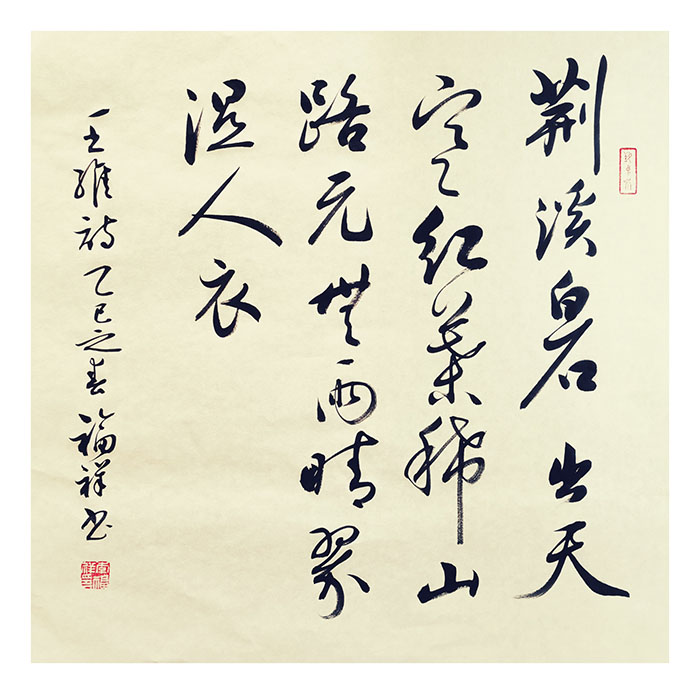 荆溪白石出天
寒红葉稀山
路元無雨晴翠
湿人衣
王維诗乙巳之春福祥书